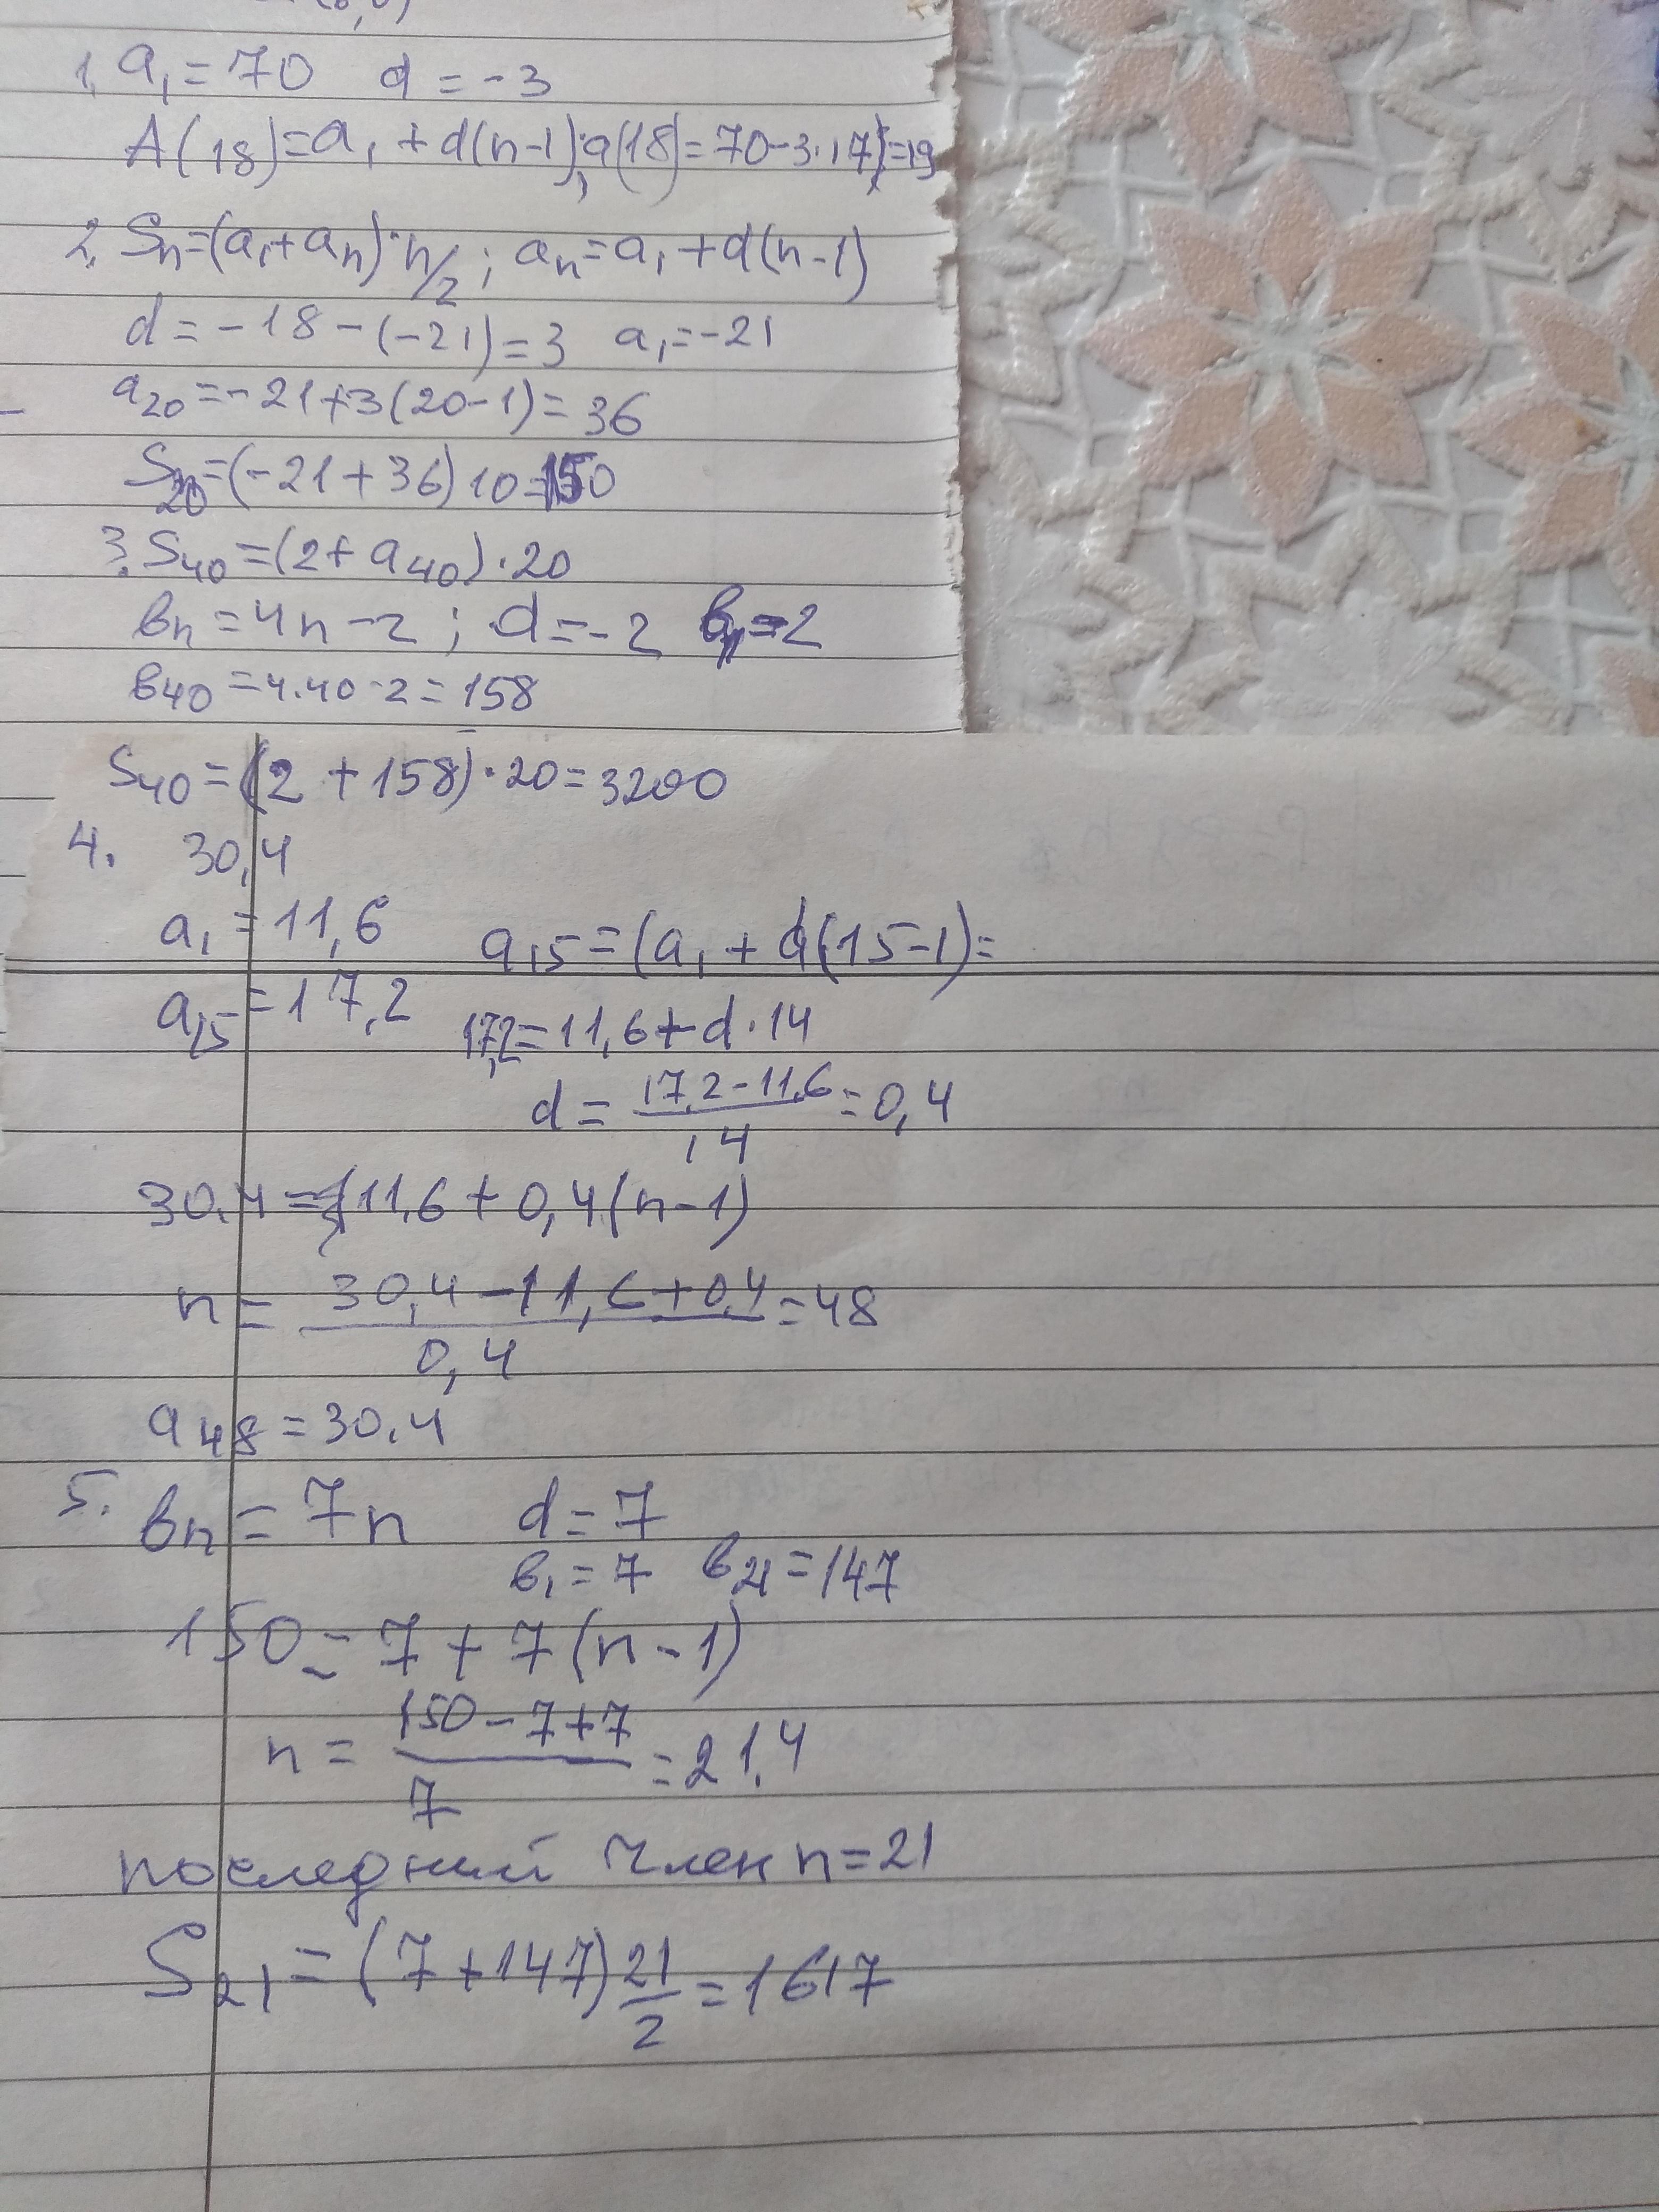 1. a₁ = 70 d = -3
A(18) = a₁ + d(n-1); a(18) = 70-3·17) = 19
2. Sn = (a₁+an)·n/2; an = a₁ + d(n-1)
d = -18 - (-21) = 3 a₁ = -21
a₂₀ = -21+3(20-1) = 36
S₂₀ = (-21+36) 10 = 150
3. S₄₀ = (2+a₄₀)·20
вn = 4n-2; d = -2 в₁ = 2
в₄₀ = 4·40-2 = 158
S₄₀ = (2+158)·20 = 3200
4. 30,4
a₁ = 11,6 a₁₅ = (a₁ + d(15-1) =
a₁₅ = 17,2 17,2 = 11,6 + d·14
d = (17,2-11,6)/14 = 0,4
30.4 = 11,6 + 0,4(n-1)
n = (30,4-11,6+0,4)/0,4 = 48
a₄₈ = 30.4
5. вn = 7n d = 7
в₁ = 7 в₂₁ = 147
150 = 7 + 7(n-1)
n = (150-7+7)/7 = 21,4
последний член n = 21
S₂₁ = (7+147) 21/2 = 1617